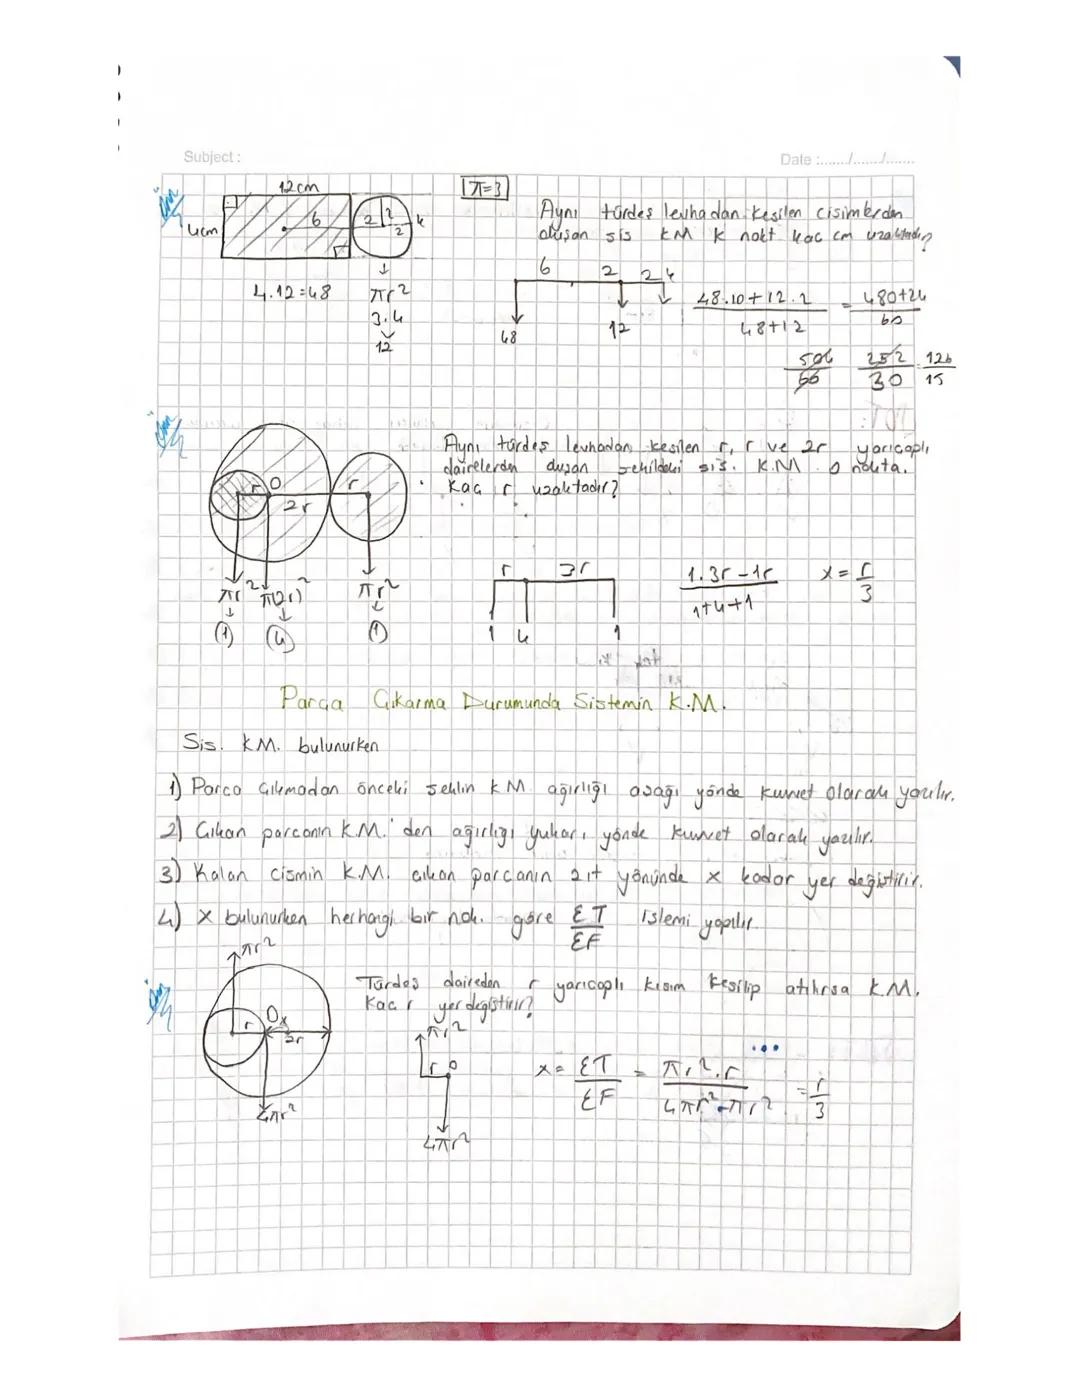 Subject:
Date :......./......./.......
ÖRN
12cm
π=3
4cm
6
2
2
2
k
Aynı türdeş levhadan kesilen cisimlerden
oluşan sis KM K nokt kaç cm uzaktadır?
4.12=48
πr²
3.4
12
6 2 2 k
48 12
48.10+12.2 = 480+24
48+12 60
504 252 126
60 30 15
ÖRN
Aynı türdeş levhadan kesilen r, r ve 2r yarıçaplı
dairelerden oluşan şekildeki sis. K.M. O nokta.
Kaç r uzaktadır?
r O 2r r
πr² π(2r)² πr²
1 4 1
r 3r
1 4 1
1.3r-1r x= r
1+4+1 3
Parça Çıkarma Durumunda Sistemin K.M.
Sis. KM. bulunurken
1) Parça çıkmadan önceki şeklin KM. ağırlığı aşağı yönde kuvvet olarak yazılır.
2) Çıkan parçanın K.M.'den ağırlığı yukarı yönde kuvvet olarak yazılır.
3) Kalan cismin K.M. çıkan parçanın zıt yönünde x kadar yer değiştirir.
4) x bulunurken herhangi bir nok. göre ΣT işlemi yapılır.
ΣF
πr²
ÖRN
Türdeş daireden r yarıçaplı kısım kesilip atılırsa K.M.
Kaç r yer değiştirir?
r O x
2r
4πr²
πr²
r O
4πr²
x= ΣT = πr².r = r
ΣF 4πr²-πr² 3